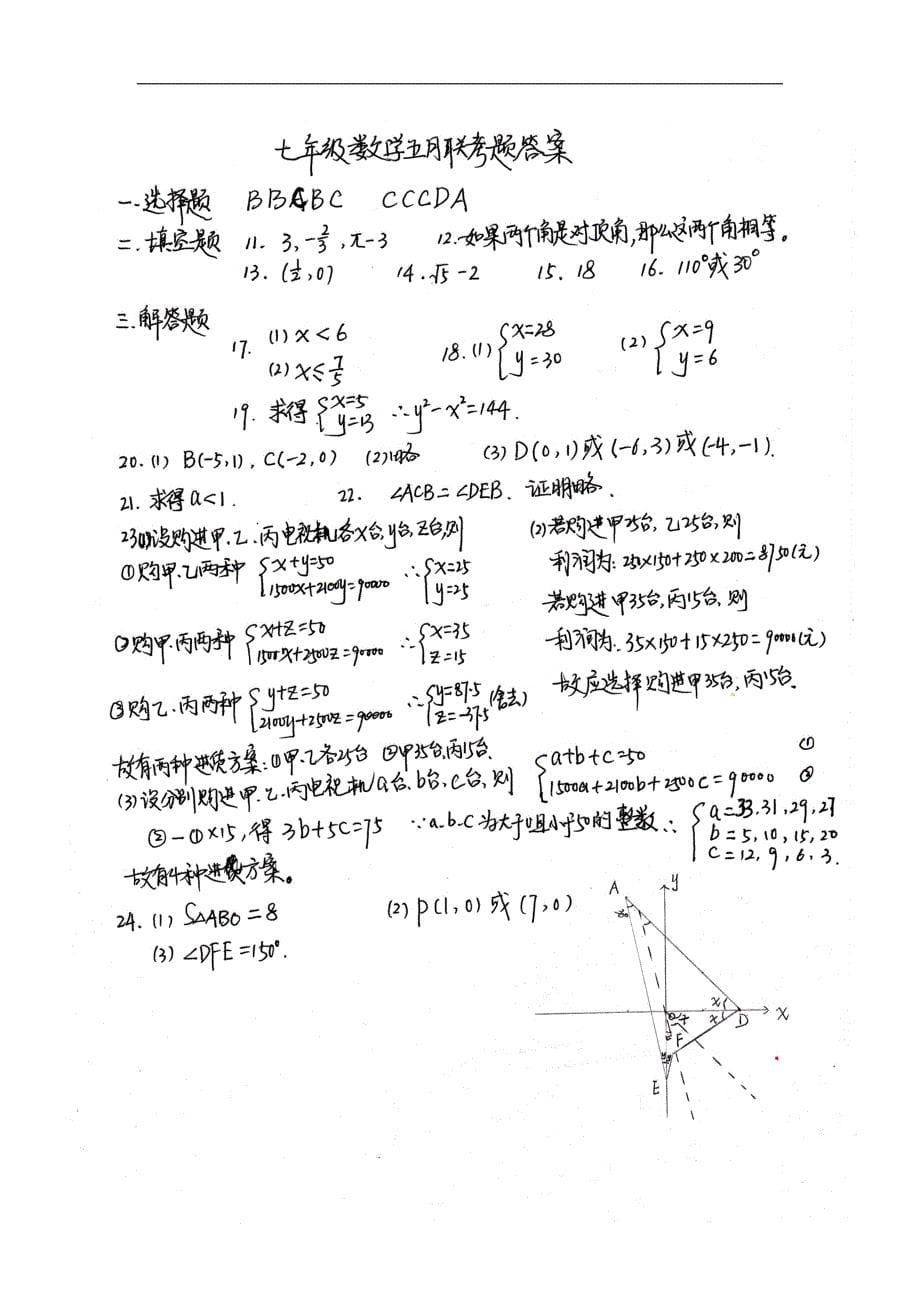 七年级数学五月联考题答案
一.选择题 BBCBC CCCDA
二.填空题 11. 3, -2/3, π-3 12.如果两个角是对顶角,那么这两个角相等。
13. (1/2, 0) 14. √5-2 15. 18 16. 110°或30°
三.解答题
17. (1) x<6 (2) x≤7/5
18. (1) {x=28 y=30 (2) {x=9 y=6
19. 求得 {x=5 y=13 ∴y²-x²=144.
20. (1) B(-5,1), C(-2,0) (2)略 (3) D(0,1)或(-6,3)或(-4,-1).
21. 求得a<1. 22. ∠ACB=∠DEB. 证明略.
23.(1)设购进甲.乙.丙电视机各x台,y台,z台,则
①购甲.乙两种 {x+y=50 1500x+2100y=90000 ∴{x=25 y=25
②购甲.丙两种 {x+z=50 1500x+2500z=90000 ∴{x=35 z=15
③购乙.丙两种 {y+z=50 2100y+2500z=90000 ∴{y=87.5 z=-37.5 (舍去)
故有两种进货方案:①甲.乙各25台 ②甲35台,丙15台.
(2)若购进甲25台,乙25台,则
利润为: 250×150+250×200=8750(元)
若购进甲35台,丙15台,则
利润为: 35×150+15×250=90000(元)
故应选择购进甲35台,丙15台.
(3)设分别购进甲.乙.丙电视机a台.b台,c台,则 {a+b+c=50 ① 1500a+2100b+2500c=90000 ②
②-①×15,得 3b+5c=75 ∵a.b.c为大于0且小于50的整数∴{a=33,31,29,27 b=5,10,15,20 c=12,9,6,3.
故有4种进货方案。
24. (1) S△ABO=8 (2) P(1,0)或(7,0)
(3) ∠DFE=150°.
A
y
x
x
D
x
F
E